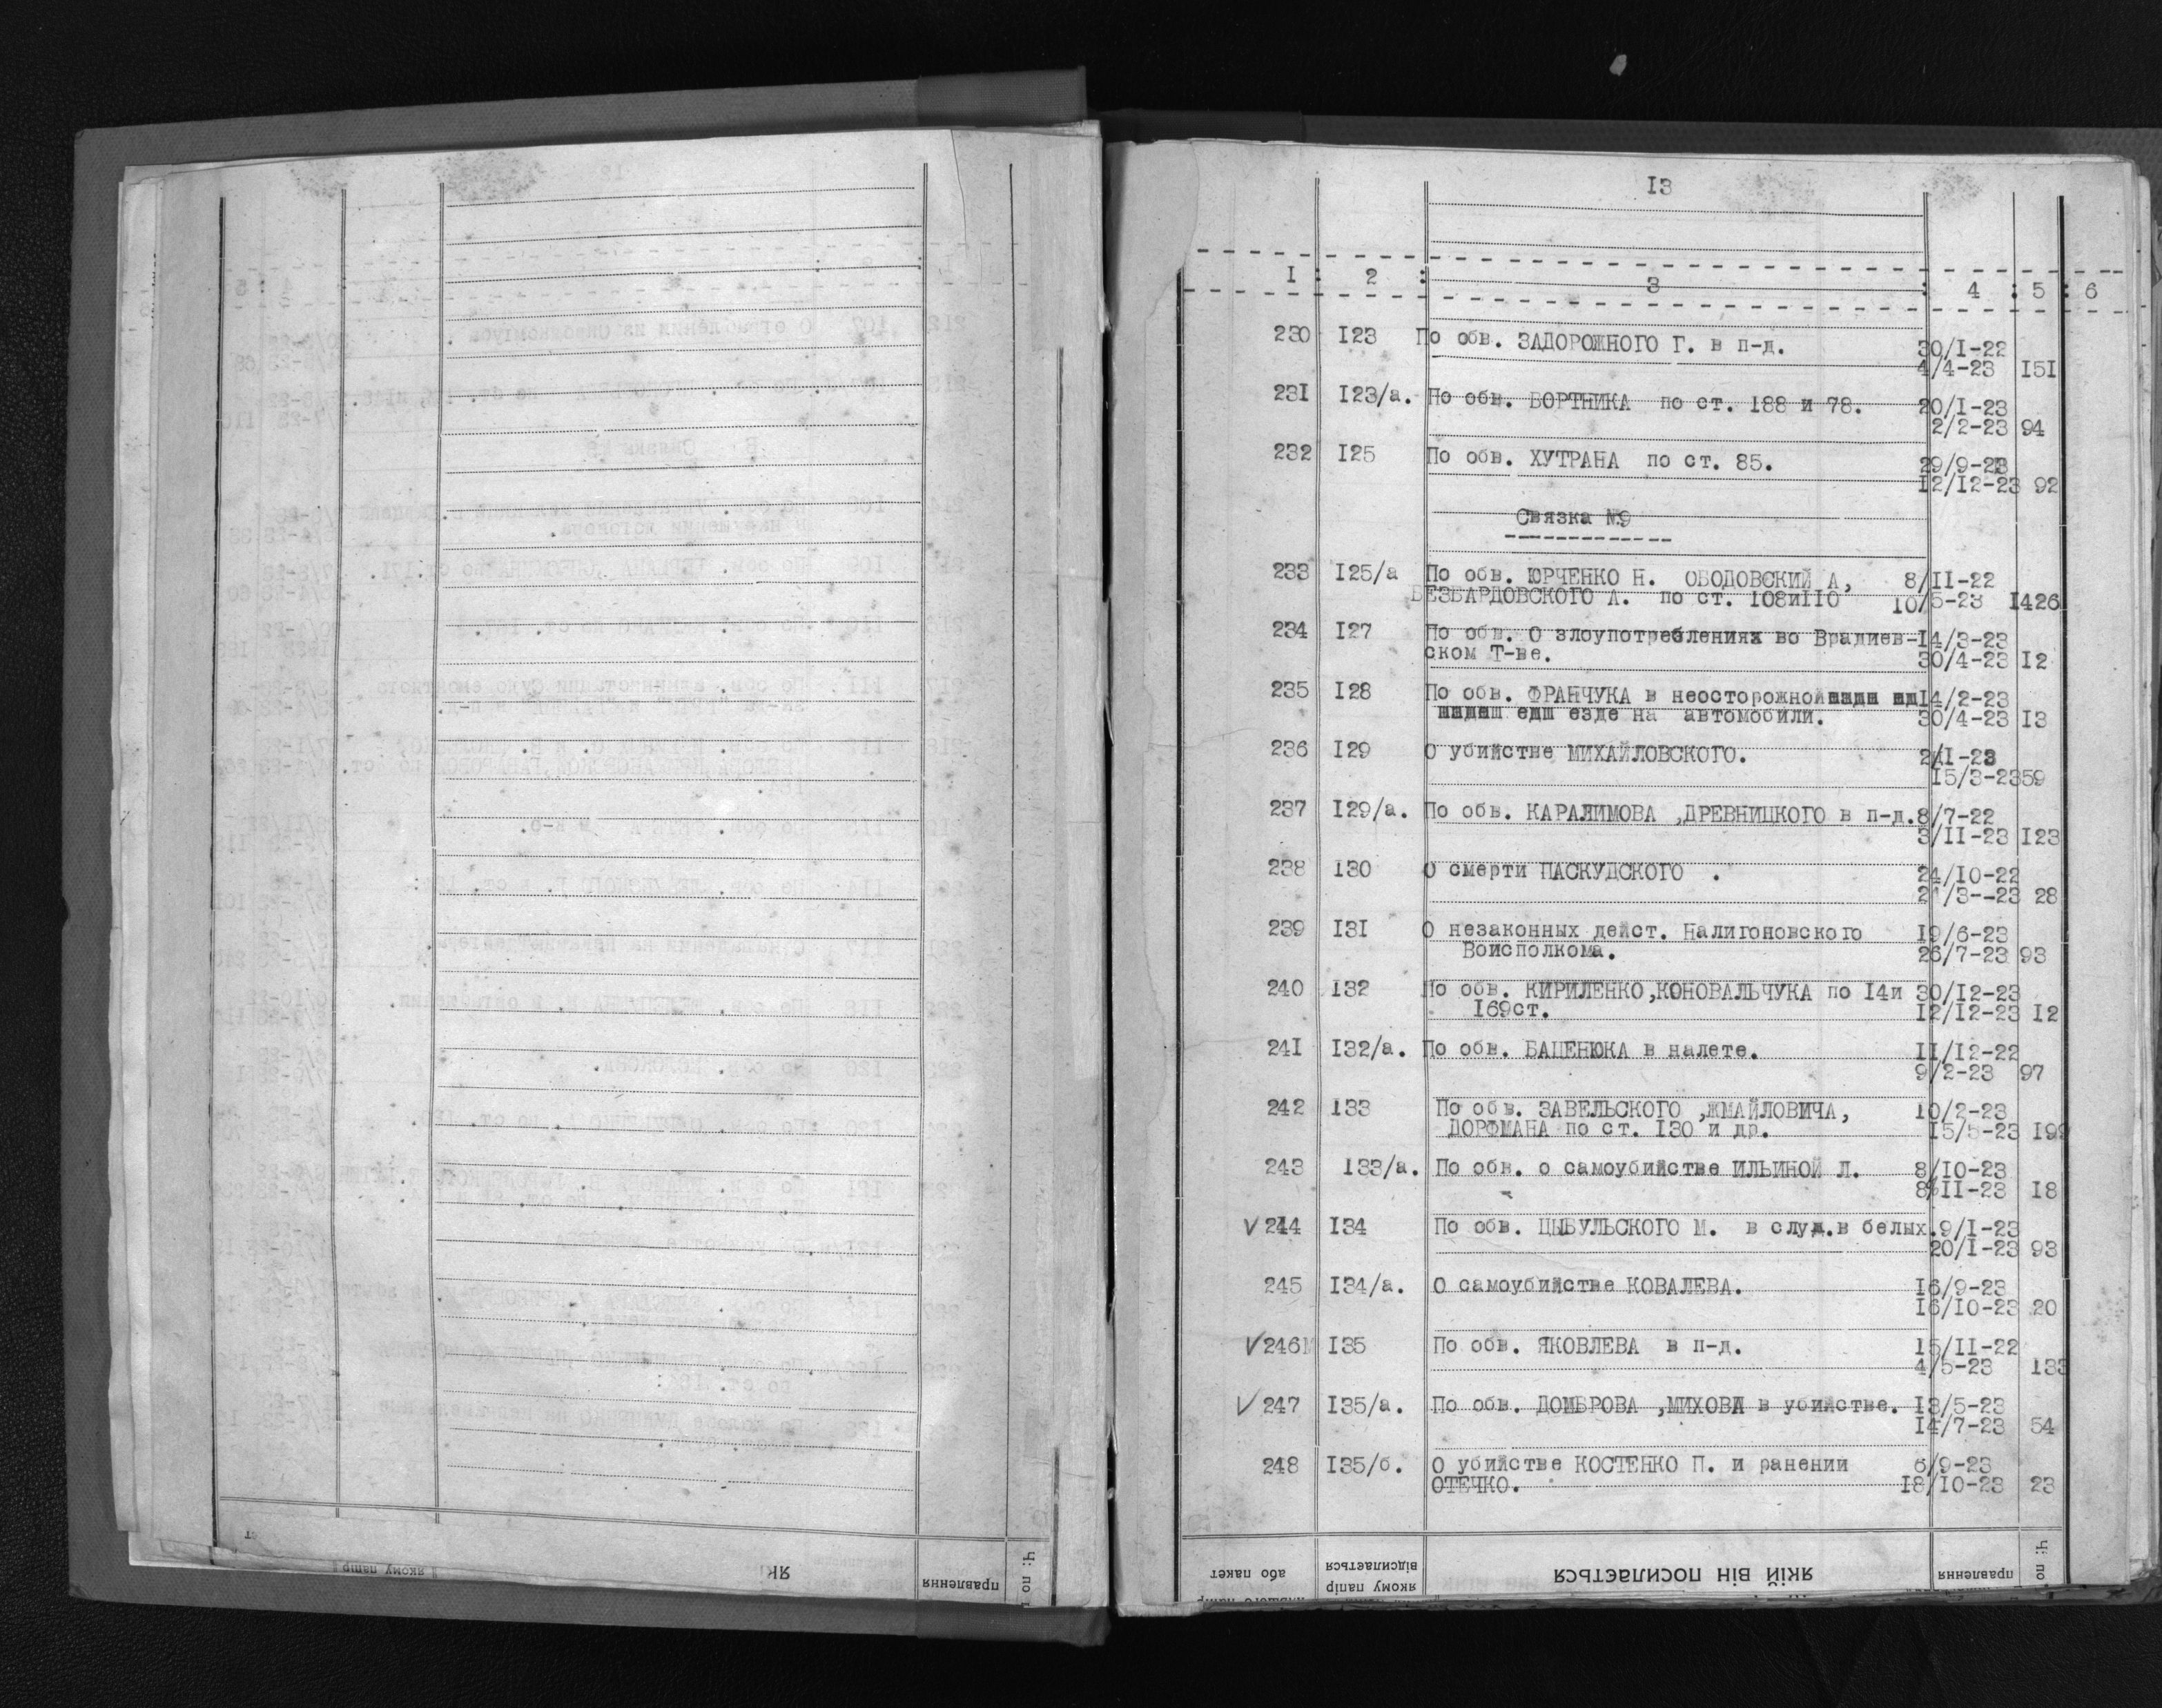 I3
I : 2 : 3 : 4 : 5 : 6
230 I23 По обв. ЗАДОРОЖНОГО Г. в п-д. 30/I-22
4/4-23 I5I
23I I23/а. По обв. БОРТНИКА по ст. I88 и 78. 20/I-23
2/2-23 94
232 I25 По обв. ХУТРАНА по ст. 85. 29/9-23
I2/I2-23 92
Связка №9
233 I25/а По обв. ЮРЧЕНКО Н. ОБОДОВСКИЙ А, 8/II-22
БЕЗБАРДОВСКОГО А. по ст. I08иII0 I0/5-23 I426
234 I27 По обв. О злоупотреблениях во Врадиев- I4/3-23
ском Т-ве. 30/4-23 I2
235 I28 По обв. ФРАНЧУКА в неосторожной I4/2-23
езде на автомобили. 30/4-23 I3
236 I29 О убийстве МИХАЙЛОВСКОГО. 2/I-23
I5/3-23 59
237 I29/а. По обв. КАРАЛИМОВА ,ДРЕВНИЦКОГО в п-д. 8/7-22
3/II-23 I23
238 I30 О смерти ПАСКУДСКОГО . 24/I0-22
2I/3--23 28
239 I3I О незаконных дейст. Налигоновского I9/6-23
Воисполкома. 26/7-23 93
240 I32 По обв. КИРИЛЕНКО,КОНОВАЛЬЧУКА по I4и 30/I2-23
I69ст. I2/I2-23 I2
24I I32/а. По обв. БАЦЕНЮКА в налете. II/I2-22
9/2-23 97
242 I33 По обв. ЗАВЕЛЬСКОГО ,ЖМАЙЛОВИЧА, I0/2-23
ДОРФМАНА по ст. I30 и др. I5/5-23 I99
243 I33/а. По обв. о самоубийстве ИЛЬИНОЙ Л. 8/I0-23
8/II-23 I8
√ 244 I34 По обв. ЦЫБУЛЬСКОГО М. в служ.в белых. 9/I-23
20/I-23 93
245 I34/а. О самоубийстве КОВАЛЕВА. I6/9-23
I6/I0-23 20
√ 246 I35 По обв. ЯКОВЛЕВА в п-д. I5/II-22
4/5-23 I33
√ 247 I35/а. По обв. ДОМБРОВА ,МИХОВА в убийстве. I3/5-23
I4/7-23 54
248 I35/б. О убийстве КОСТЕНКО П. и ранении 6/9-23
ОТЕЧКО. I8/I0-23 23
або пакет
якому папір відсилається
якій він посилається
правлення
Ч. по
якому папір
як
правлення
Ч. по